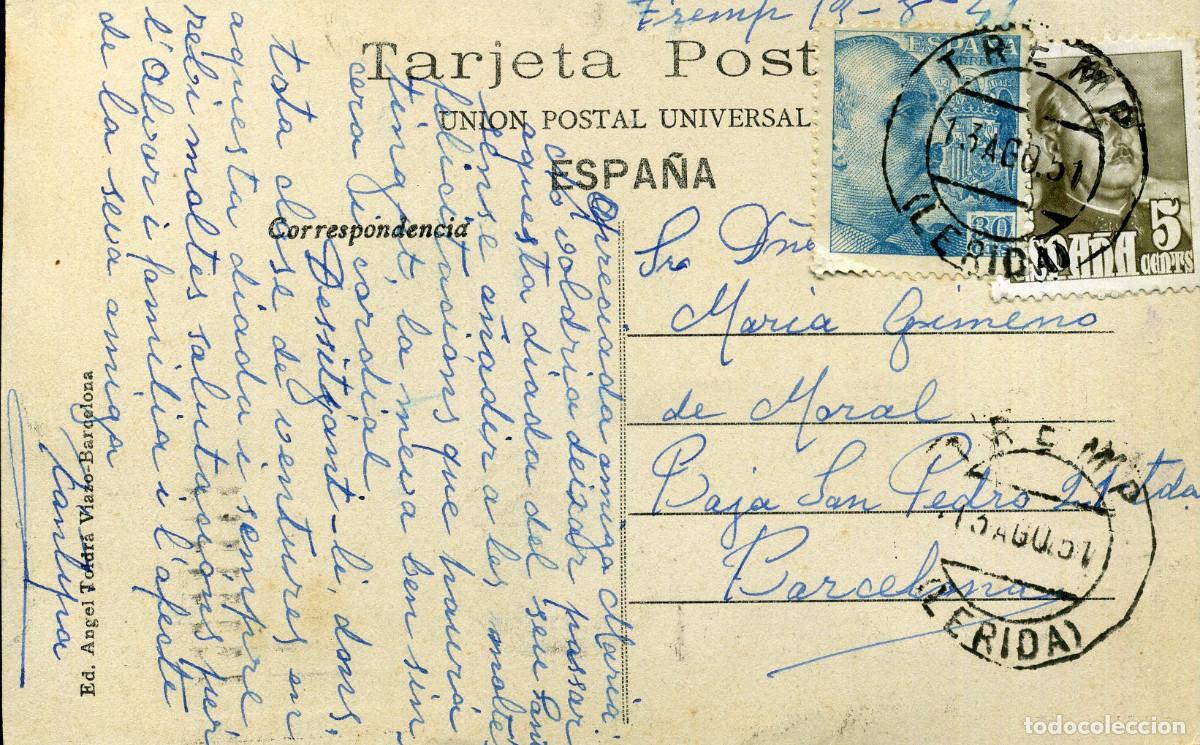 Tremp 12-8-51
Tarjeta Post
UNION POSTAL UNIVERSAL
ESPAÑA
ESPAÑA
CORREOS
ESPAÑA 5
CENTS
TREMP
13 AGO.51
(LERIDA)
Correspondencia
Apreciada amiga Maria
no voldria deixar passar
aquesta diada del seu Sant
sense añadir a les molte
felicitacións que haurá
tingut, la meva ben sin,
cera i cordial.
Dessitjant-li, dons,
tota classe de ventures en
aquesta diada i sempre
rebi moltes salutacions per
l'Alvar i familia i l'afecte
de la seva amiga
Sra Dña
Maria Gimeno
de Moral
Baja San Pedro
Barcelona
TREMP
13 AGO.51
(LERIDA)
Ed. Angel Toldrá Viazo-Barcelona
todocoleccion